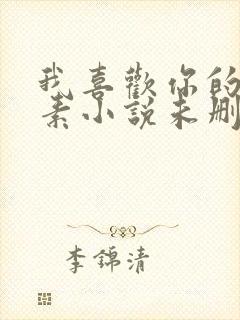 我喜歡你的
素小說未刪
李錦清